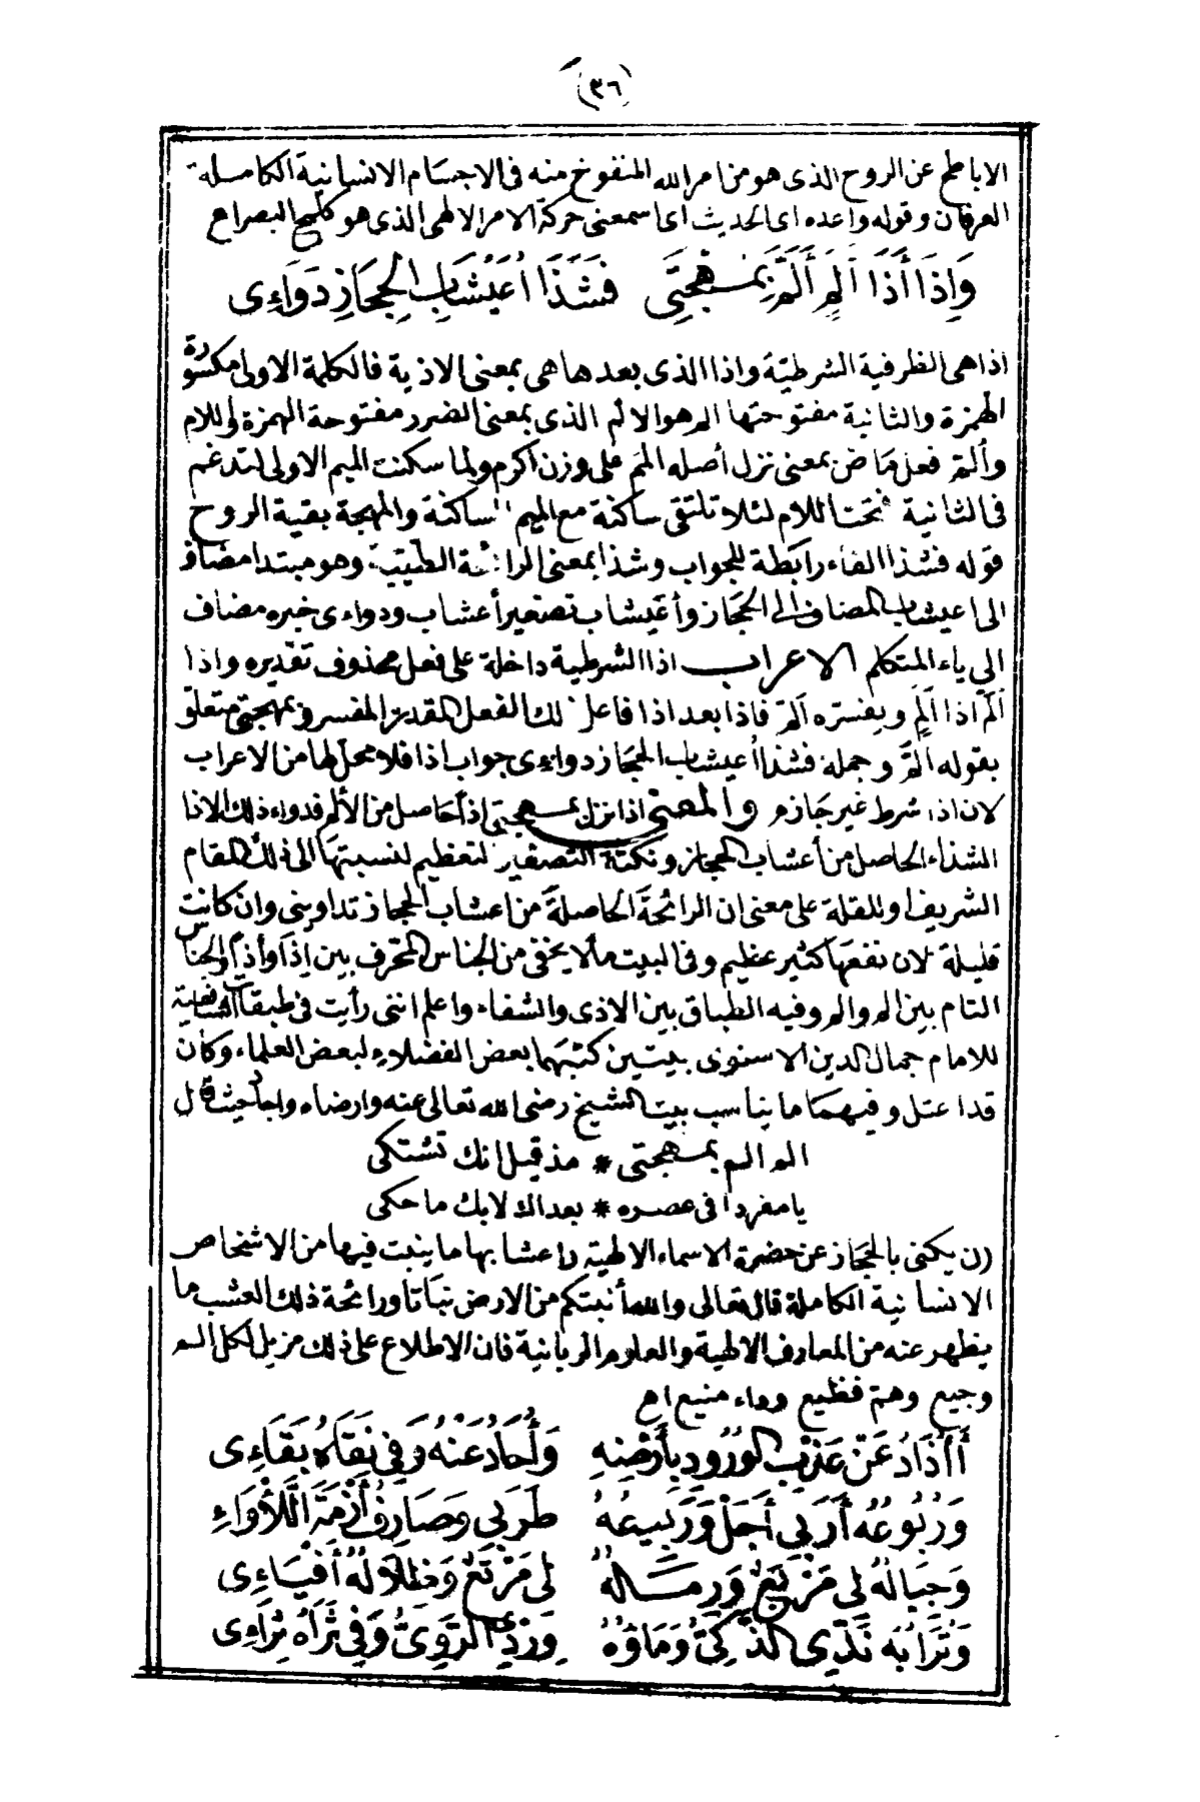 (٣٦)
الاباطح عن الروح الذى هو من امر الله المنفوخ منه فى الاجسام الانسانية الكاملة
العرفان وقوله واعده اى الحديث اى اسمعنى حركة الامر الالهى الذى هو كلمح البصر اه
وَاِذَا أَذَا أَلَمٍ أَلَمَّ بِمُهْجَتِى فَشَذَا أُعَيْشَابِ الْحِجَازِ دَوَاءِى
اذا هى الظرفية الشرطية واذا الذى بعدها هى بمعنى الاذية فالكلمة الاولى مكسورة
الهمزة والثانية مفتوحتها الم هو الالم الذى بمعنى الضرر مفتوحة الهمزة واللام
وألم فعل ماض بمعنى نزل أصله المم على وزن اكرم ولما سكنت الميم الاولى لتدغم
فى الثانية فتحت اللام لئلا تلتقى ساكنة مع الميم الساكنة والمهجة بقية الروح
قوله فشذا الفاء رابطة للجواب وشذا بمعنى الرائحة الطيبة وهو مبتدا مضاف
الى اعيشاب المضاف الى الحجاز وأعيشاب تصغير أعشاب ودواءى خبره مضاف
الى ياء المتكلم الاعراب اذا الشرطية داخلة على فعل محذوف تقديره واذا
ألم أذا ألم ويفسره ألم فاذا بعد اذا فاعل لذلك الفعل المقدر المفسر وبمهجتى متعلق
بقوله ألم وجملة فشذا أعيشاب الحجاز دواءى جواب اذا فلا محل لها من الاعراب
لان اذا شرط غير جازم والمعنى اذا نزل بمهجتى اذا حاصل من الألم فدواء ذلك الاذا
الشذاء الحاصل من أعشاب الحجاز ونكتة التصغير التعظيم لنسبتها الى ذلك المقام
الشريف او للقلة على معنى ان الرائحة الحاصلة من اعشاب الحجاز تداوينى وان كانت
قليلة لان نفعها كثير عظيم وفى البيت ما لا يخفى من الجناس المحرف بين إذا وأذا والجناس
التام بين الم والم وفيه الطباق بين الاذى والشفاء واعلم اننى رأيت فى طبقات الشافعية
للامام جمال الدين الاسنوى بيتين كتبهما بعض الفضلاء لبعض العلماء وكان
قد اعتل وفيهما ما يناسب بيت الشيخ رضى الله تعالى عنه وارضاه واجاد حيث قال
الم الم بمهجتى * مذ قيل انك تشتكى
يا مفردا فى عصره * بعداك لا بك ما حكى
(ن) يكنى بالحجاز عن حضرة الاسماء الالهية واعشابها ما ينبت فيها من الاشخاص
الانسانية الكاملة قال تعالى والله أنبتكم من الارض نباتا ورائحة ذلك العشب ما
يظهر عنه من المعارف الالهية والعلوم الربانية فان الاطلاع على ذلك مزيل لكل الم
وجيع وهم فظيع وداء منيع اه
أَأُذَادُ عَنْ عَذْبِ الْوُرُودِ بِأَرْضِهِ وَأُحَادُ عَنْهُ وَفِى نَقَاهُ بَقَاءِى
وَرُبُوعُهُ أَرَبِى أَجَلْ وَرَبِيعُهُ طَرَبِى وَصَارِفُ أَزْمَةِ اللَّأْوَاءِ
وَجِبَالُهُ لِى مَرْبَعٌ وَرِمَالُهُ لِى مَرْتَعٌ وَظِلَالُهُ أَفْيَاءِى
وَتُرَابُهُ نَدِّى الذَّكِىُّ وَمَاؤُهُ وِرْدِى الرَّوِىُّ وَفِى ثَرَاهُ ثَرَاءِى